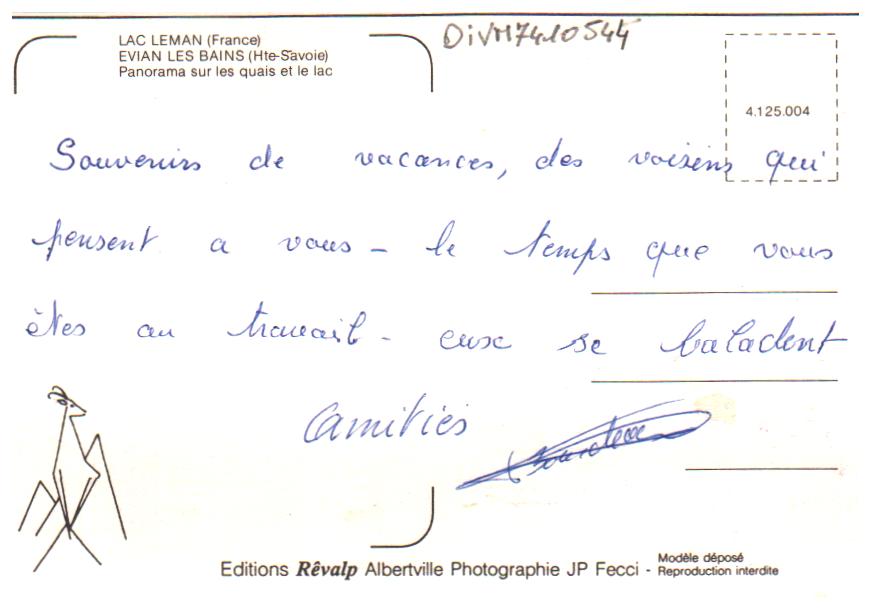 DiVM7410544
LAC LEMAN (France)
EVIAN LES BAINS (Hte-Savoie)
Panorama sur les quais et le lac
4.125.004
Souvenirs de vacances, des voisins qui
pensent a vous - le temps que vous
êtes au travail - eux se baladent
Amitiés
Editions Rêvalp Albertville Photographie JP Fecci - Modèle déposé
Reproduction interdite